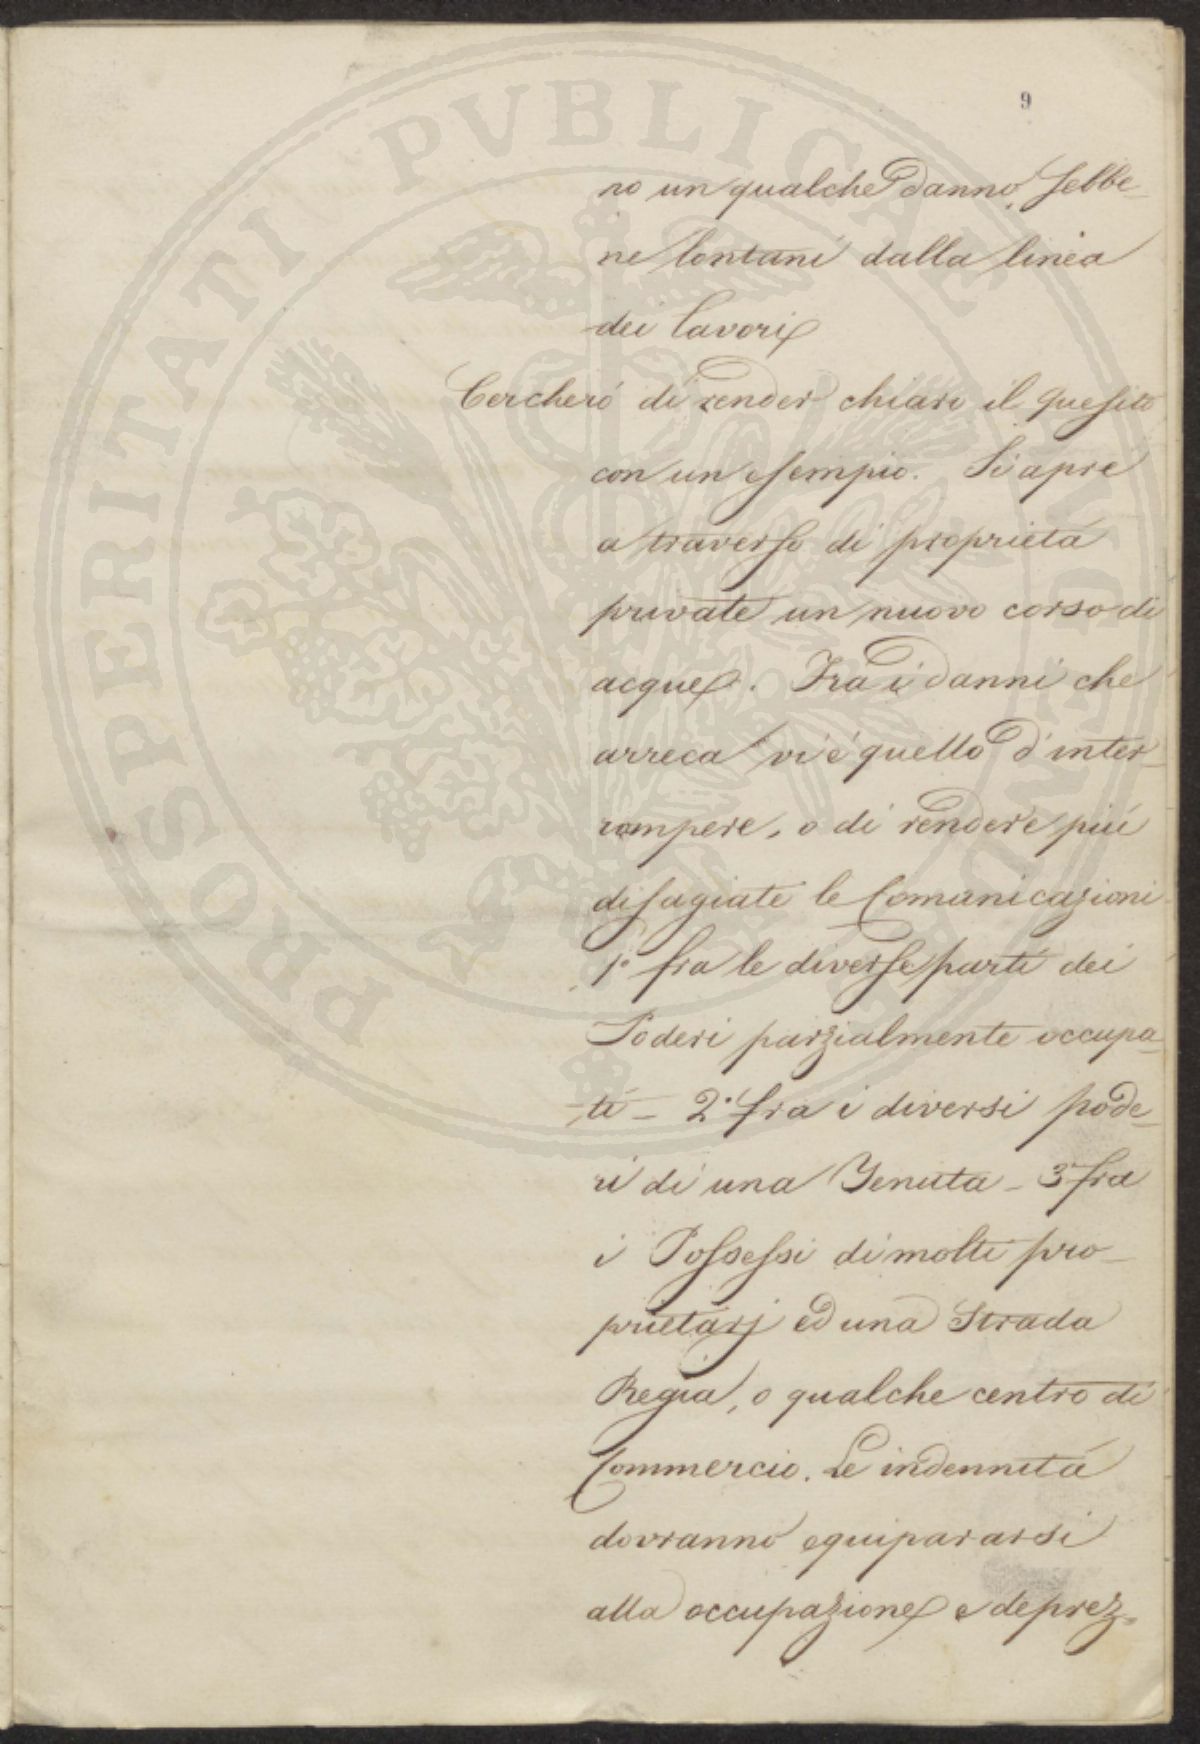 9
no un qualche danno, sebbe-
ne lontani dalla linea
dei lavori
Cercherò di render chiaro il quesito
con un esempio. Si apre
a traverso di proprietà
private un nuovo corso di
acque. Fra i danni che
arreca vi è quello d'inter-
rompere, o di rendere più
disagiate le Comunicazioni
1° fra le diverse parti dei
Poderi parzialmente occupa-
ti - 2° fra i diversi pode-
ri di una Tenuta - 3° fra
i Possessi di molti pro-
prietarj ed una Strada
Regia, o qualche centro di
Commercio. Le indennità
dovranno equipararsi
alla occupazione e deprez-
PROSPERITATI PVBLICAE